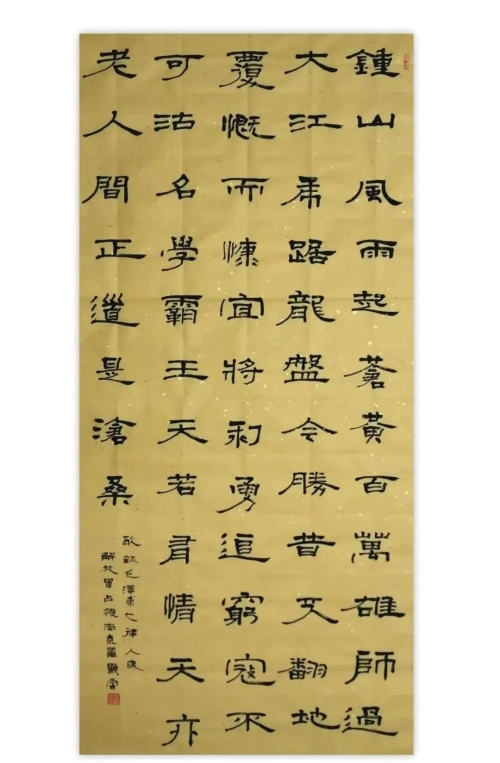 鍾山風雨起蒼黃百萬雄師過
大江虎踞龍盤今勝昔天翻地
覆慨而慷宜將剩勇追窮寇不
可沽名學霸王天若有情天亦
老人間正道是滄桑
敬錄毛澤東七律人民
解放軍占領南京羅